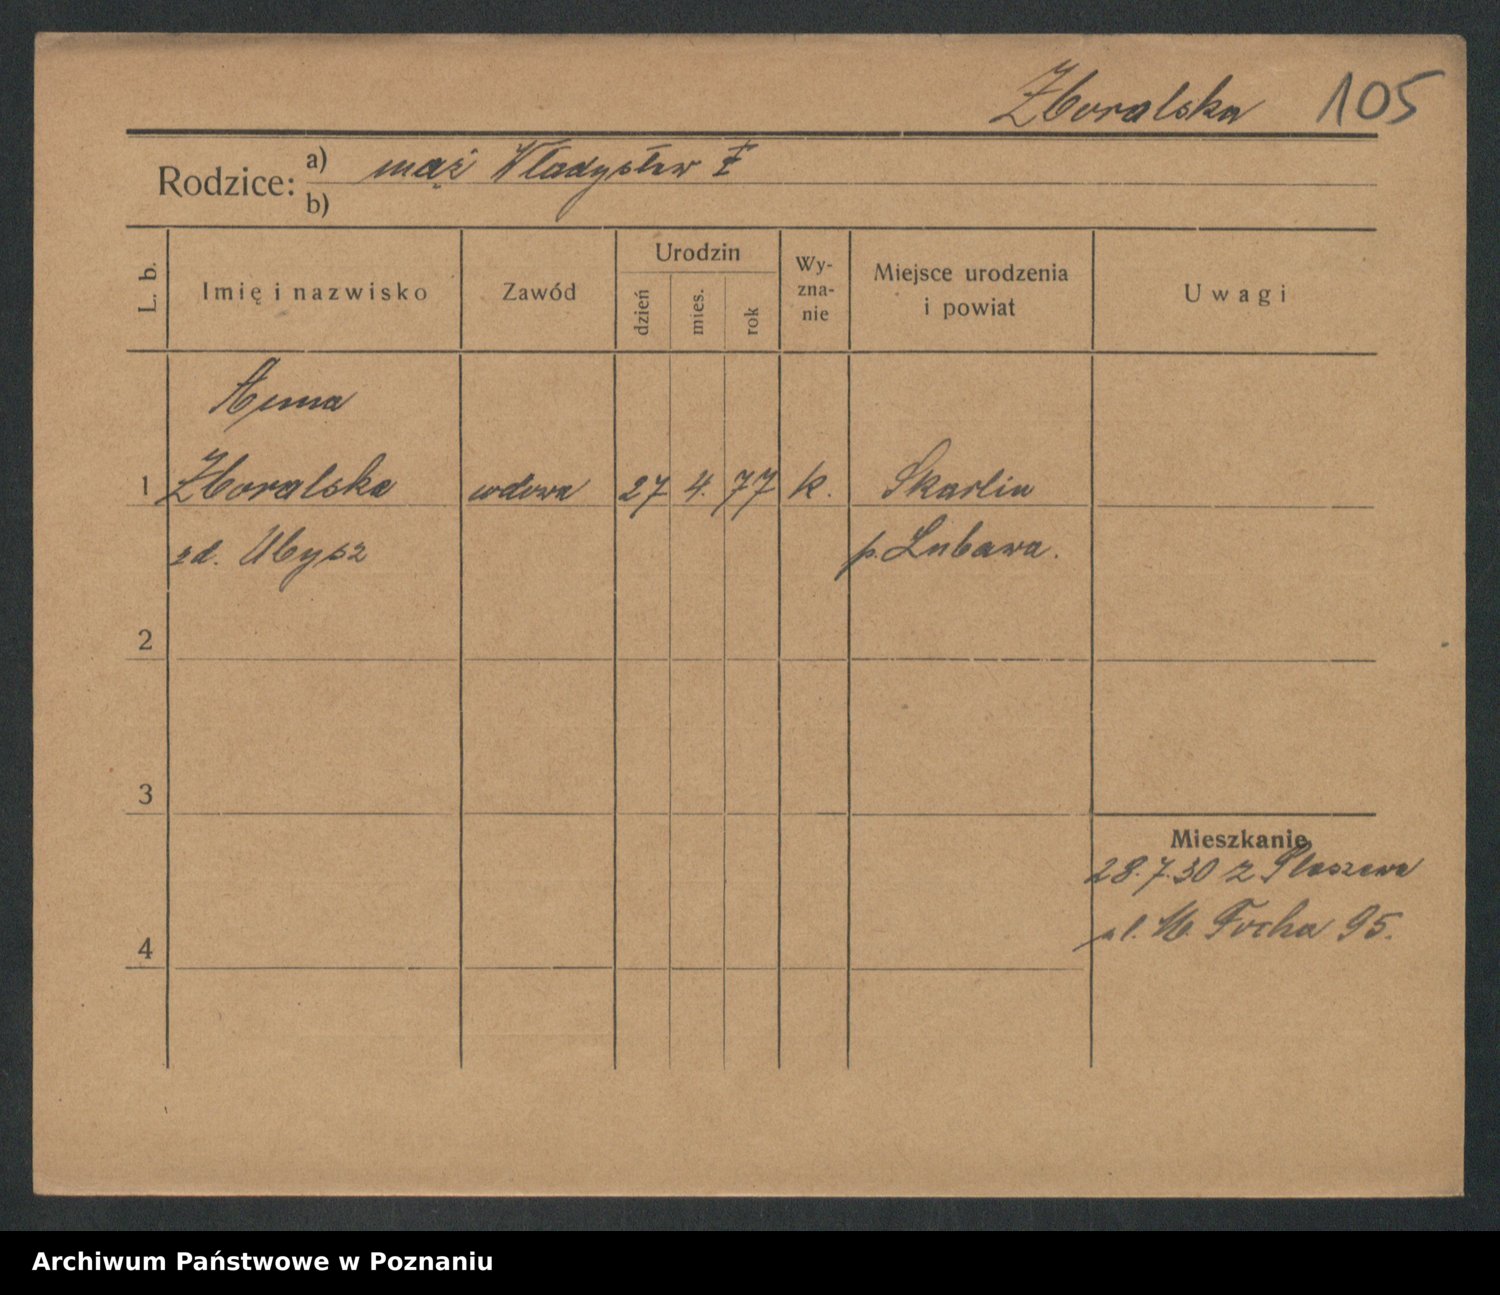 Zboralska 105
Rodzice: a) mąż Władysław Z
b)
L. b.
Imię i nazwisko
Zawód
Urodzin
dzień
mies.
rok
Wy-
zna-
nie
Miejsce urodzenia
i powiat
Uwagi
Anna
1 Zboralska wdowa 27 4. 77 k. Skarlin
zd. Ubysz p. Lubawa.
2
3
Mieszkanie
28.7.30 z Pleszewa
ul. M. Focha 95.
4
Archiwum Państwowe w Poznaniu